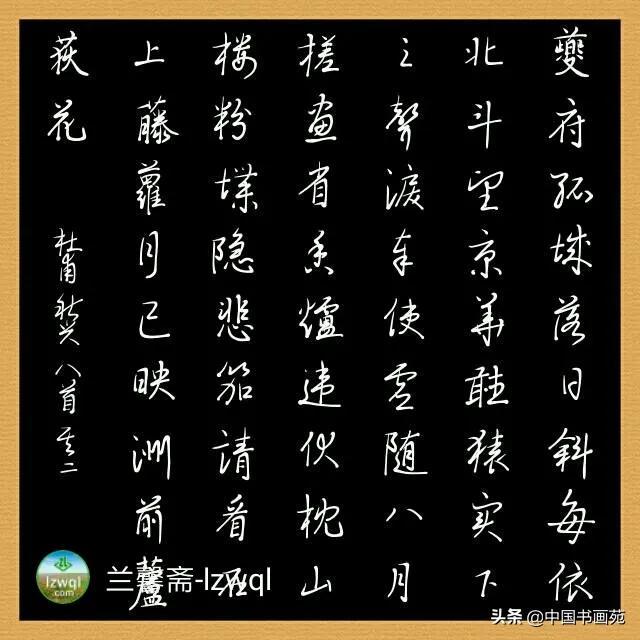 夔府孤城落日斜每依
北斗望京華聽猿实下
三聲淚奉使虚随八月
槎画省香爐違伏枕山
楼粉堞隐悲笳請看石
上藤蘿月已映洲前蘆
荻花
杜甫秋兴八首其二
lzwql
兰斋-lzwql
头条 @中国书画苑